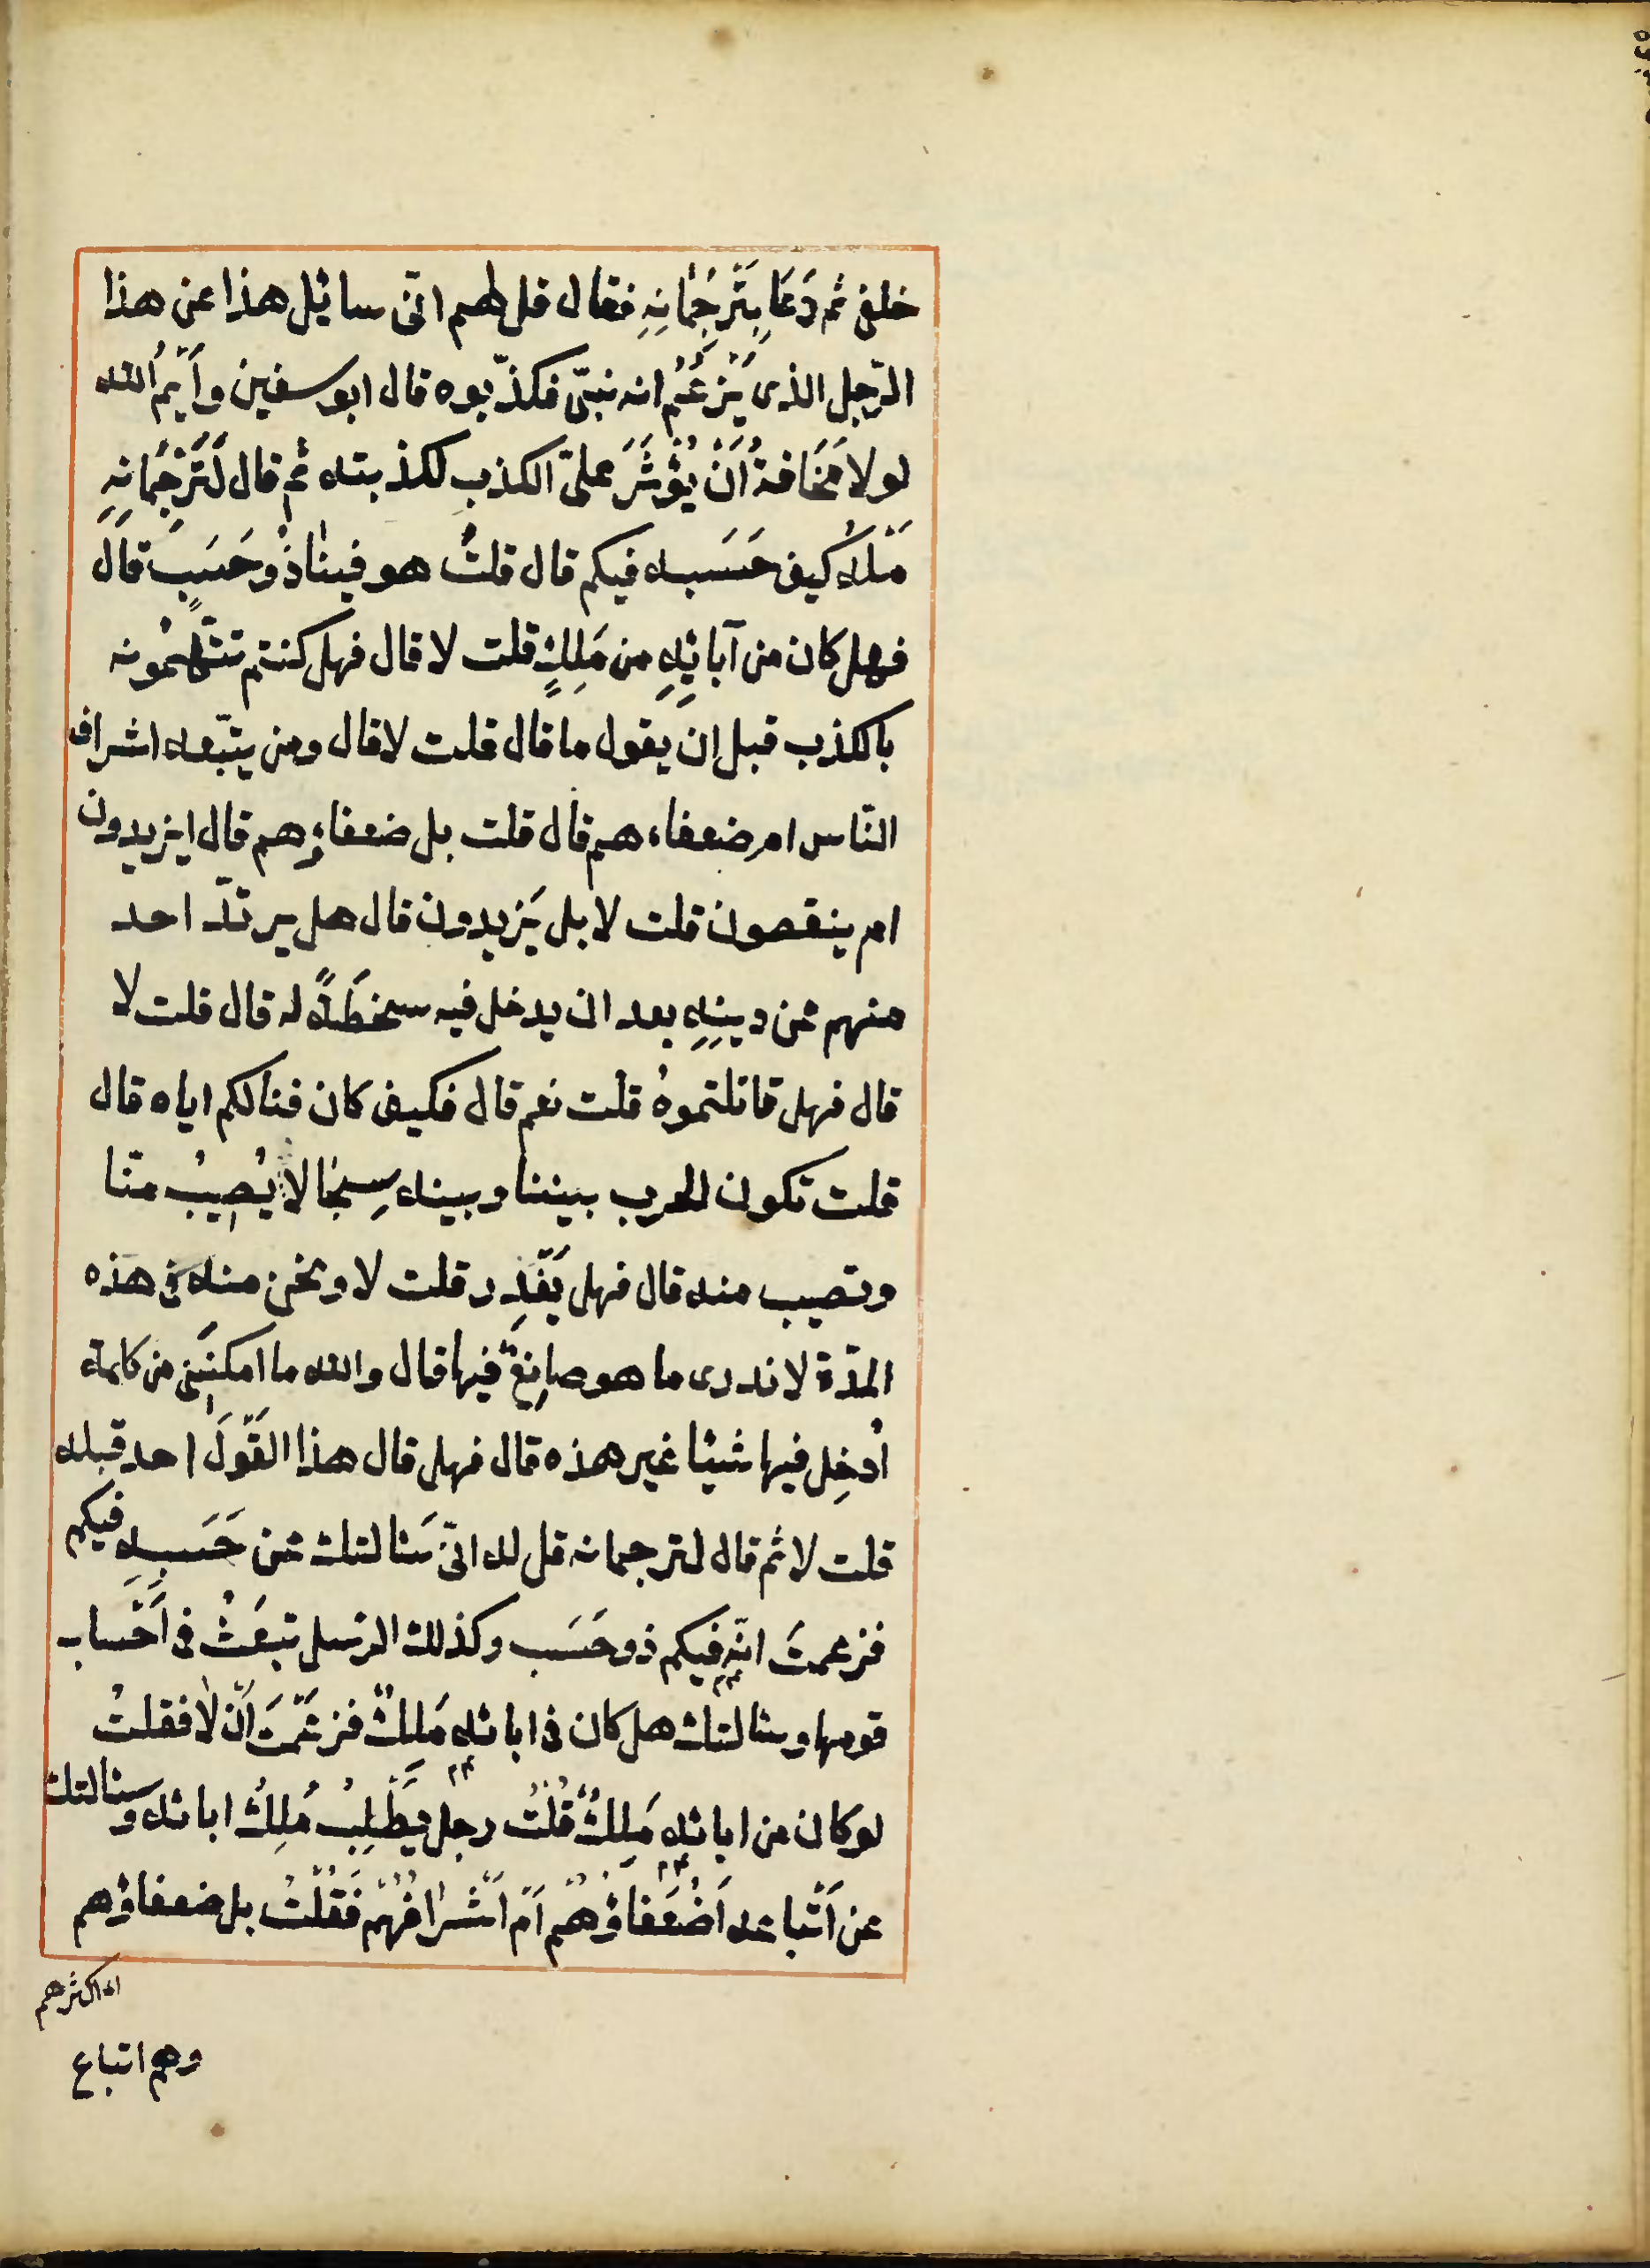 خلفى ثم دَعَا بِتَرجُمٰانِهِ فقال قل لهم انّى سائل هذا عن هذا
الرّجل الذى يَزعُم انه نبىّ فكذّبوه قال ابو سفين وأيمُ الله
لولا مَخَافةُ اَنْ يُؤْثَرَ علىّ الكذب لكذبته ثم قال لَتَرْجُمَانِهِ
سَلْهُ كيف حَسَبه فيكم قال قلتُ هو فينٰا ذُو حَسَبٍ قال
فهل كان من آبائِهِ من مَلِكٍ قلت لا قال فهل كنتم تتّهمُونه
بالكذب قبل ان يقول ما قال قلت لا قال ومن يتّبعه اشراف
النّاس ام ضعفاءهم قال قلت بل ضعفاؤهم قال ايزيدون
ام ينقصون قلت لا بل يَزيدون قال هل يرتدّ احد
منهم عن دينِهِ بعد ان يدخل فيه سخطَةً له قال قلت لا
قال فهل قاتلتموهُ قلت نعم قال فكيف كان قتالكم اياه قال
قلت تكون الحرب بيننا وبينه سِجٰا لا يُصِيبُ منّا
ونصيب منه قال فهل يَغْدِر قلت لا ونحن منه فى هذه
المدّة لا ندرى ما هو صانِعٌ فيها قال والله ما امكننِى من كلمة
اُدخِل فيها شيئا غير هذه قال فهل قال هذا القَوْلَ احد قبله
قلت لا ثم قال لترجمانه قل له انّى سَئالتك عن حَسَبِهِ فيكم
فزعمتَ انّه فيكم ذو حَسَب وكذلك الرّسل تبعَثُ فى اَحْساب
قومها وسئالتك هل كان فى ابائه مَلِكٌ فزعَمْتَ اَنْ لٰا فقلتُ
لو كان من ابائه مَلِكٌ قُلْتُ رجل يَطْلِبُ مُلِكُ ابائه وسئالتك
عن اَتْباعه اَضُعَفاؤُهُمْ اَمْ اَشْرٰافُهُمْ فَقُلْتُ بل ضعفاؤهم
وهم اتباع